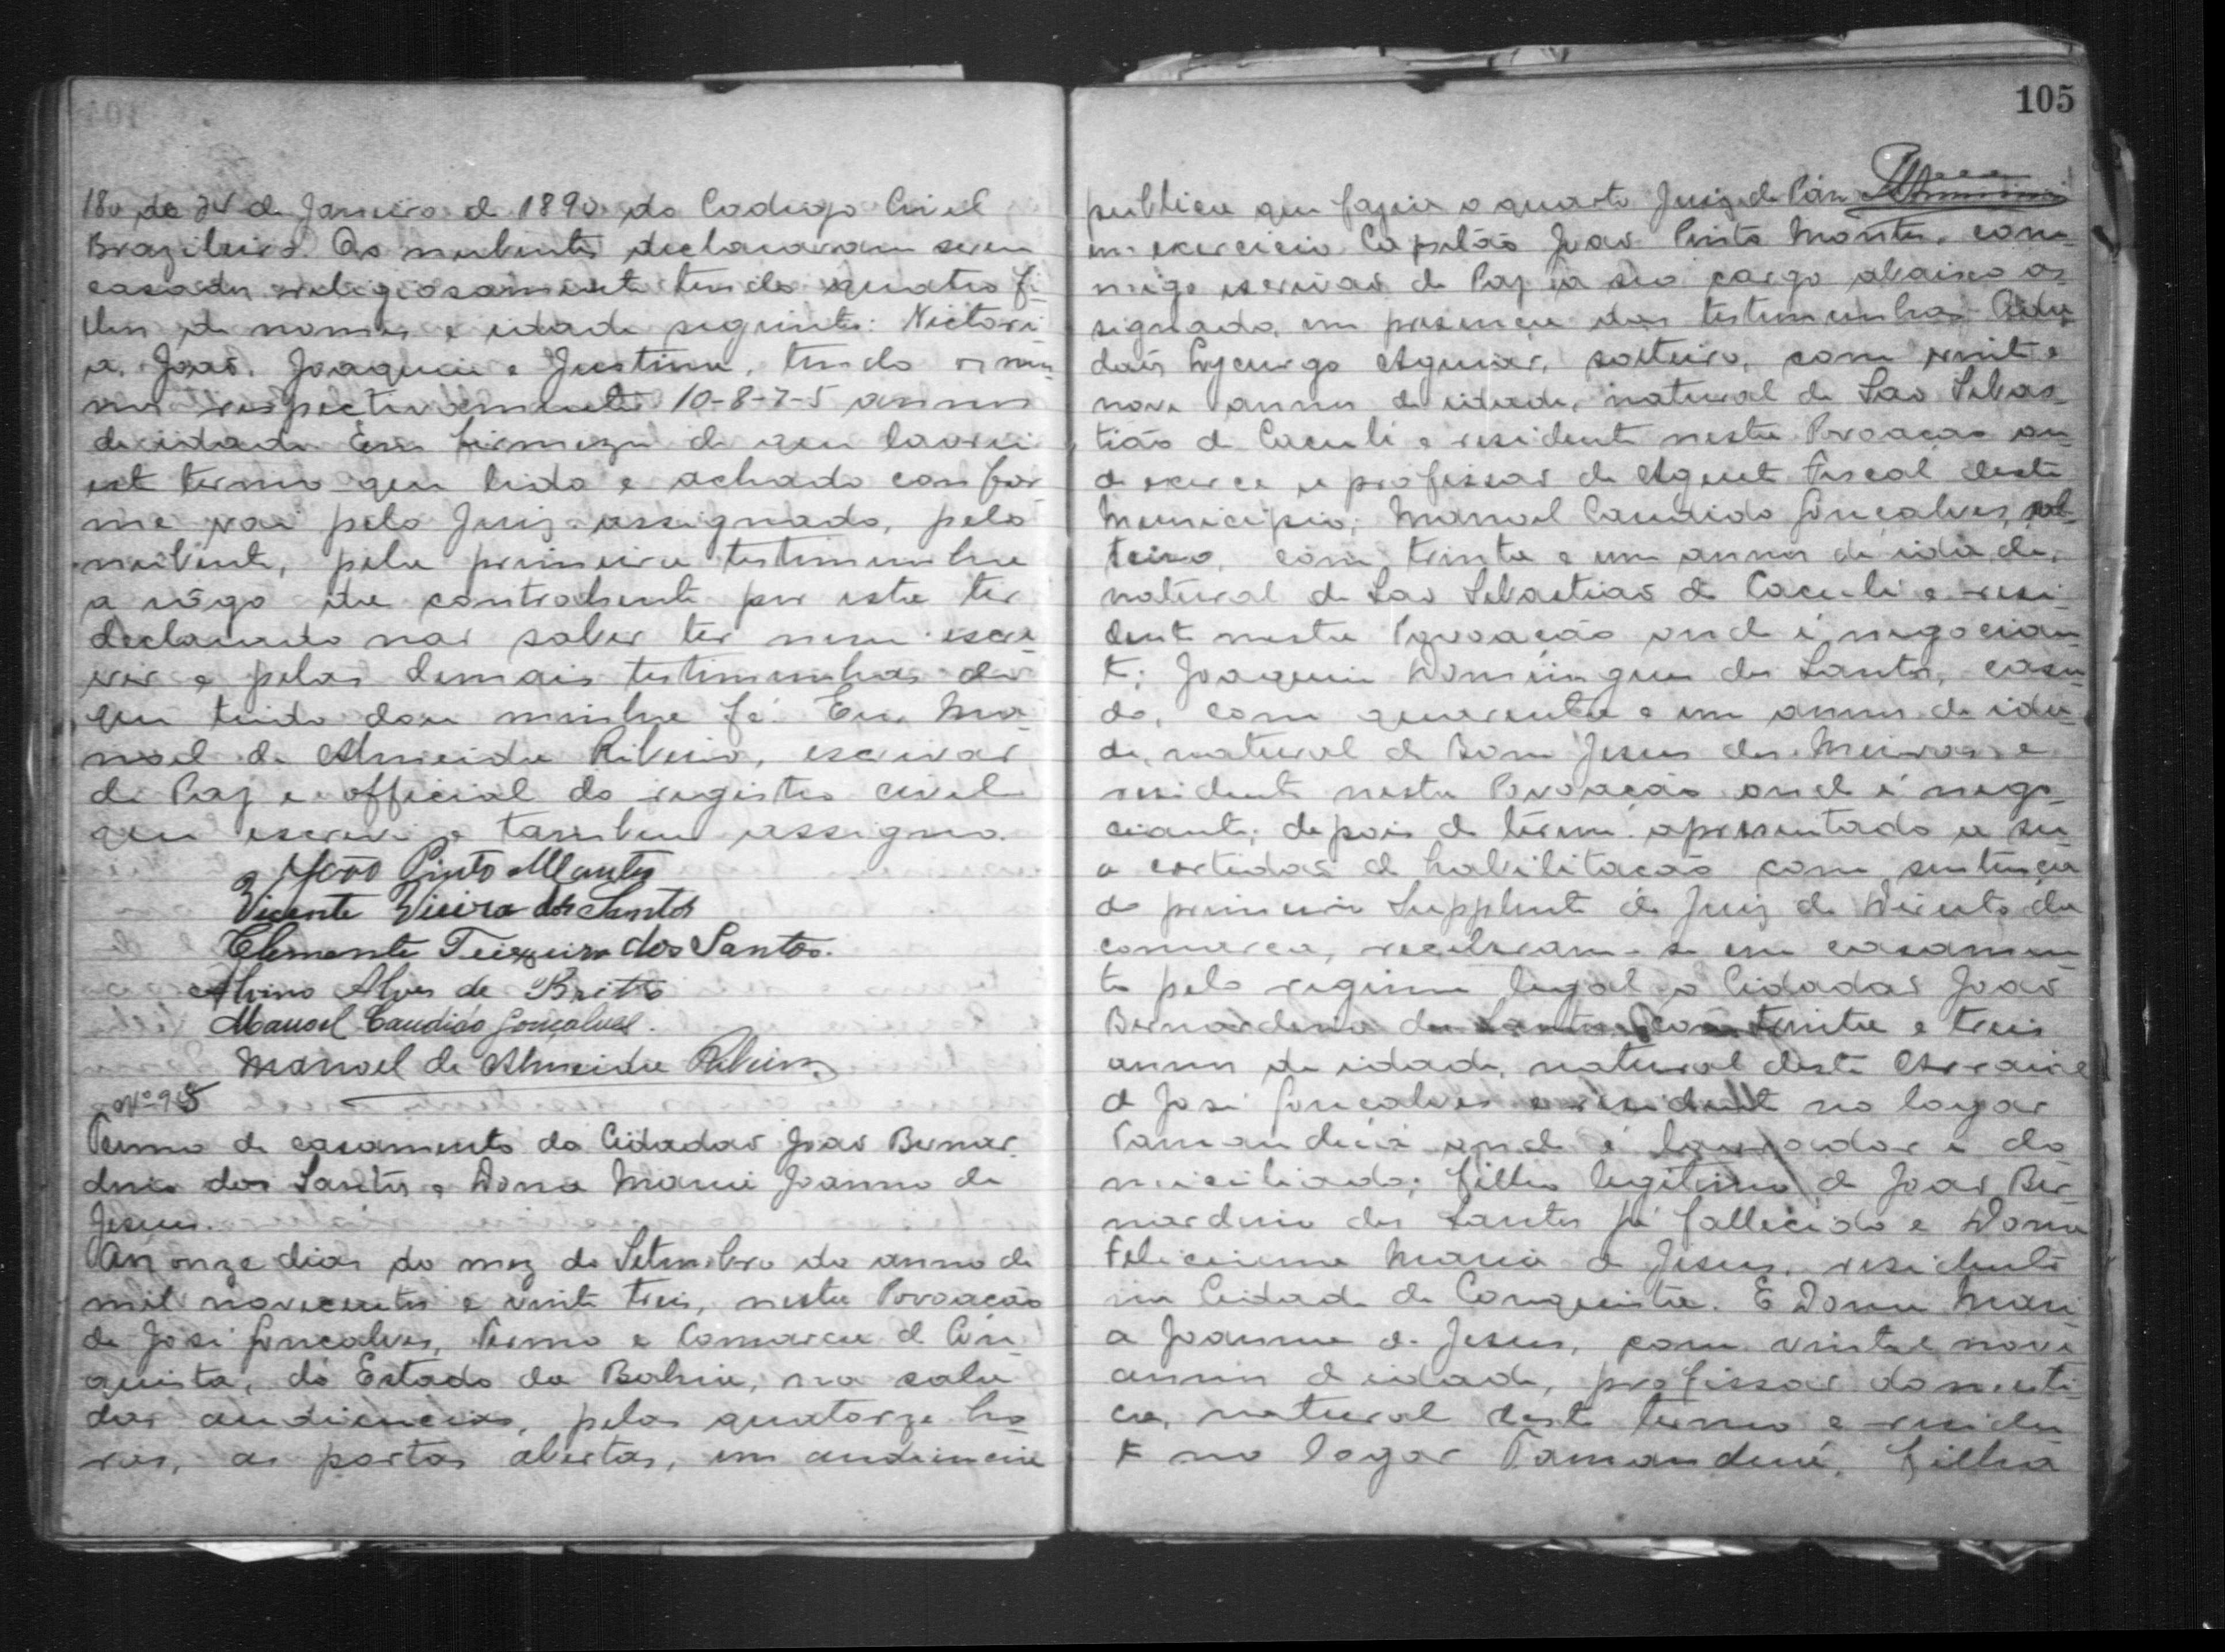 180 de 24 de Janeiro de 1890 do Codigo Civel
Brazileiro. Os nubentes declararam serem
casados religiosamente tendo quatro fi-
lhos de nomes e idade seguintes: Victori-
a, João, Joaquim e Justina, tendo os mes-
mos respectivamente 10-8-7-5 annos
de idade. Em firmeza de que lavrei
este termo que lido e achado confor-
me vai pelo Juiz assignado, pelo
nubente, pela primeira testimunha
a rôgo da contrahente por esta ter
declarado não saber ler nem escre-
ver e pelas demais testimunhas do
que tudo dou minha fé. Eu, Ma-
noel de Almeida Ribeiro, escrivão
de Paz e official do registro civel
que escrevi e tambem assigno.
João Pinto Montes
Vicente Vieira dos Santos
Clemente Teixeira dos Santos.
Alvino Alves de Britto
Manoel Candido Gonçalves.
Manoel de Almeida Ribeiro
Nº 98
Termo de casamento do Cidadão João Bernar-
dino dos Santos e Dona Maria Joanna de
Jesus.
Aos onze dias do mez de Setembro do anno de
mil novecentos e vinte treis, nesta Povoação
de José Gonçalves, Termo e Comarca de Con-
quista, do Estado da Bahia, na sala
das audiencias, pelas quatorze ho-
ras, as portas abertas, em audiencia
105
publica que fazia o quarto Juiz de Páz
em exercicio Capitão João Pinto Montes, com-
migo escrivão de Paz a seo cargo abaixo as-
signado, em presença das testimunhas Cida-
dãos Lycurgo Aguiar, solteiro, com vinte e
nove annos de idade, natural de São Sebas-
tião de Caculé e residente nesta Povoação on-
de exerce a profissão de Agente Fiscal deste
Municipio; Manoel Candido Gonçalves, sol-
teiro, com trinta e um annos de idade,
natural de São Sebastião de Caculé e resi-
dente nesta Povoação onde é negocian-
te; Joaquim Domingues dos Santos, casa-
do, com quarenta e um annos de ida-
de, natural de Bom Jesus dos Meiras e
residente nesta Povoação onde é nego-
ciante; depois de terem apresentado a su-
a certidão de habilitação com sentença
do primeiro Supplente do Juiz de Direito da
comarca, receberam-se em casamen-
to pelo regimem legal o Cidadão João
Bernardino dos Santos, com trinta e treis
annos de idade, natural deste Arraial
de José Gonçalves e residente no logar
Tamanduá onde é lavrador e do-
miciliado; filho legitimo de João Ber-
nardino dos Santos já fallecido e Dona
Feliciana Maria de Jesus, residente
na Cidade de Conquista. E Dona Mari-
a Joanna de Jesus, com vinte e nove
annos de idade, profissão domesti-
ca, natural deste termo e residen-
te no logar Tamanduá, filha